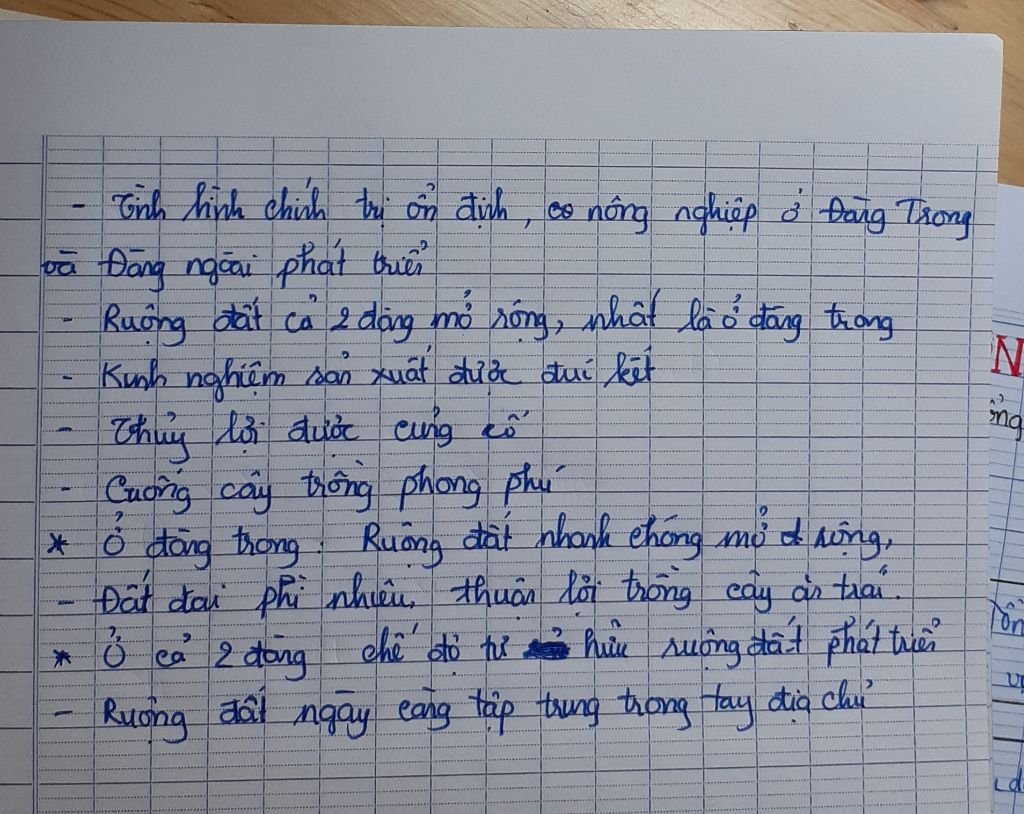 - Tình hình chính trị ổn định, nông nghiệp ở Đàng Trong
và Đàng ngoài phát triển
- Ruộng đất cả 2 đàng mở rộng, nhất là ở đàng trong
- Kinh nghiệm sản xuất được đúc kết
- Thủy lợi được củng cố
- Cuống cây trồng phong phú
* Ở đàng trong: Ruộng đất nhanh chóng mở rộng,
- Đất đai phì nhiêu, thuận lợi trồng cây ăn trái.
* Ở cả 2 đàng chế độ tư hữu ruộng đất phát triển
- Ruộng đất ngày càng tập trung trong tay địa chủ
N
ổng